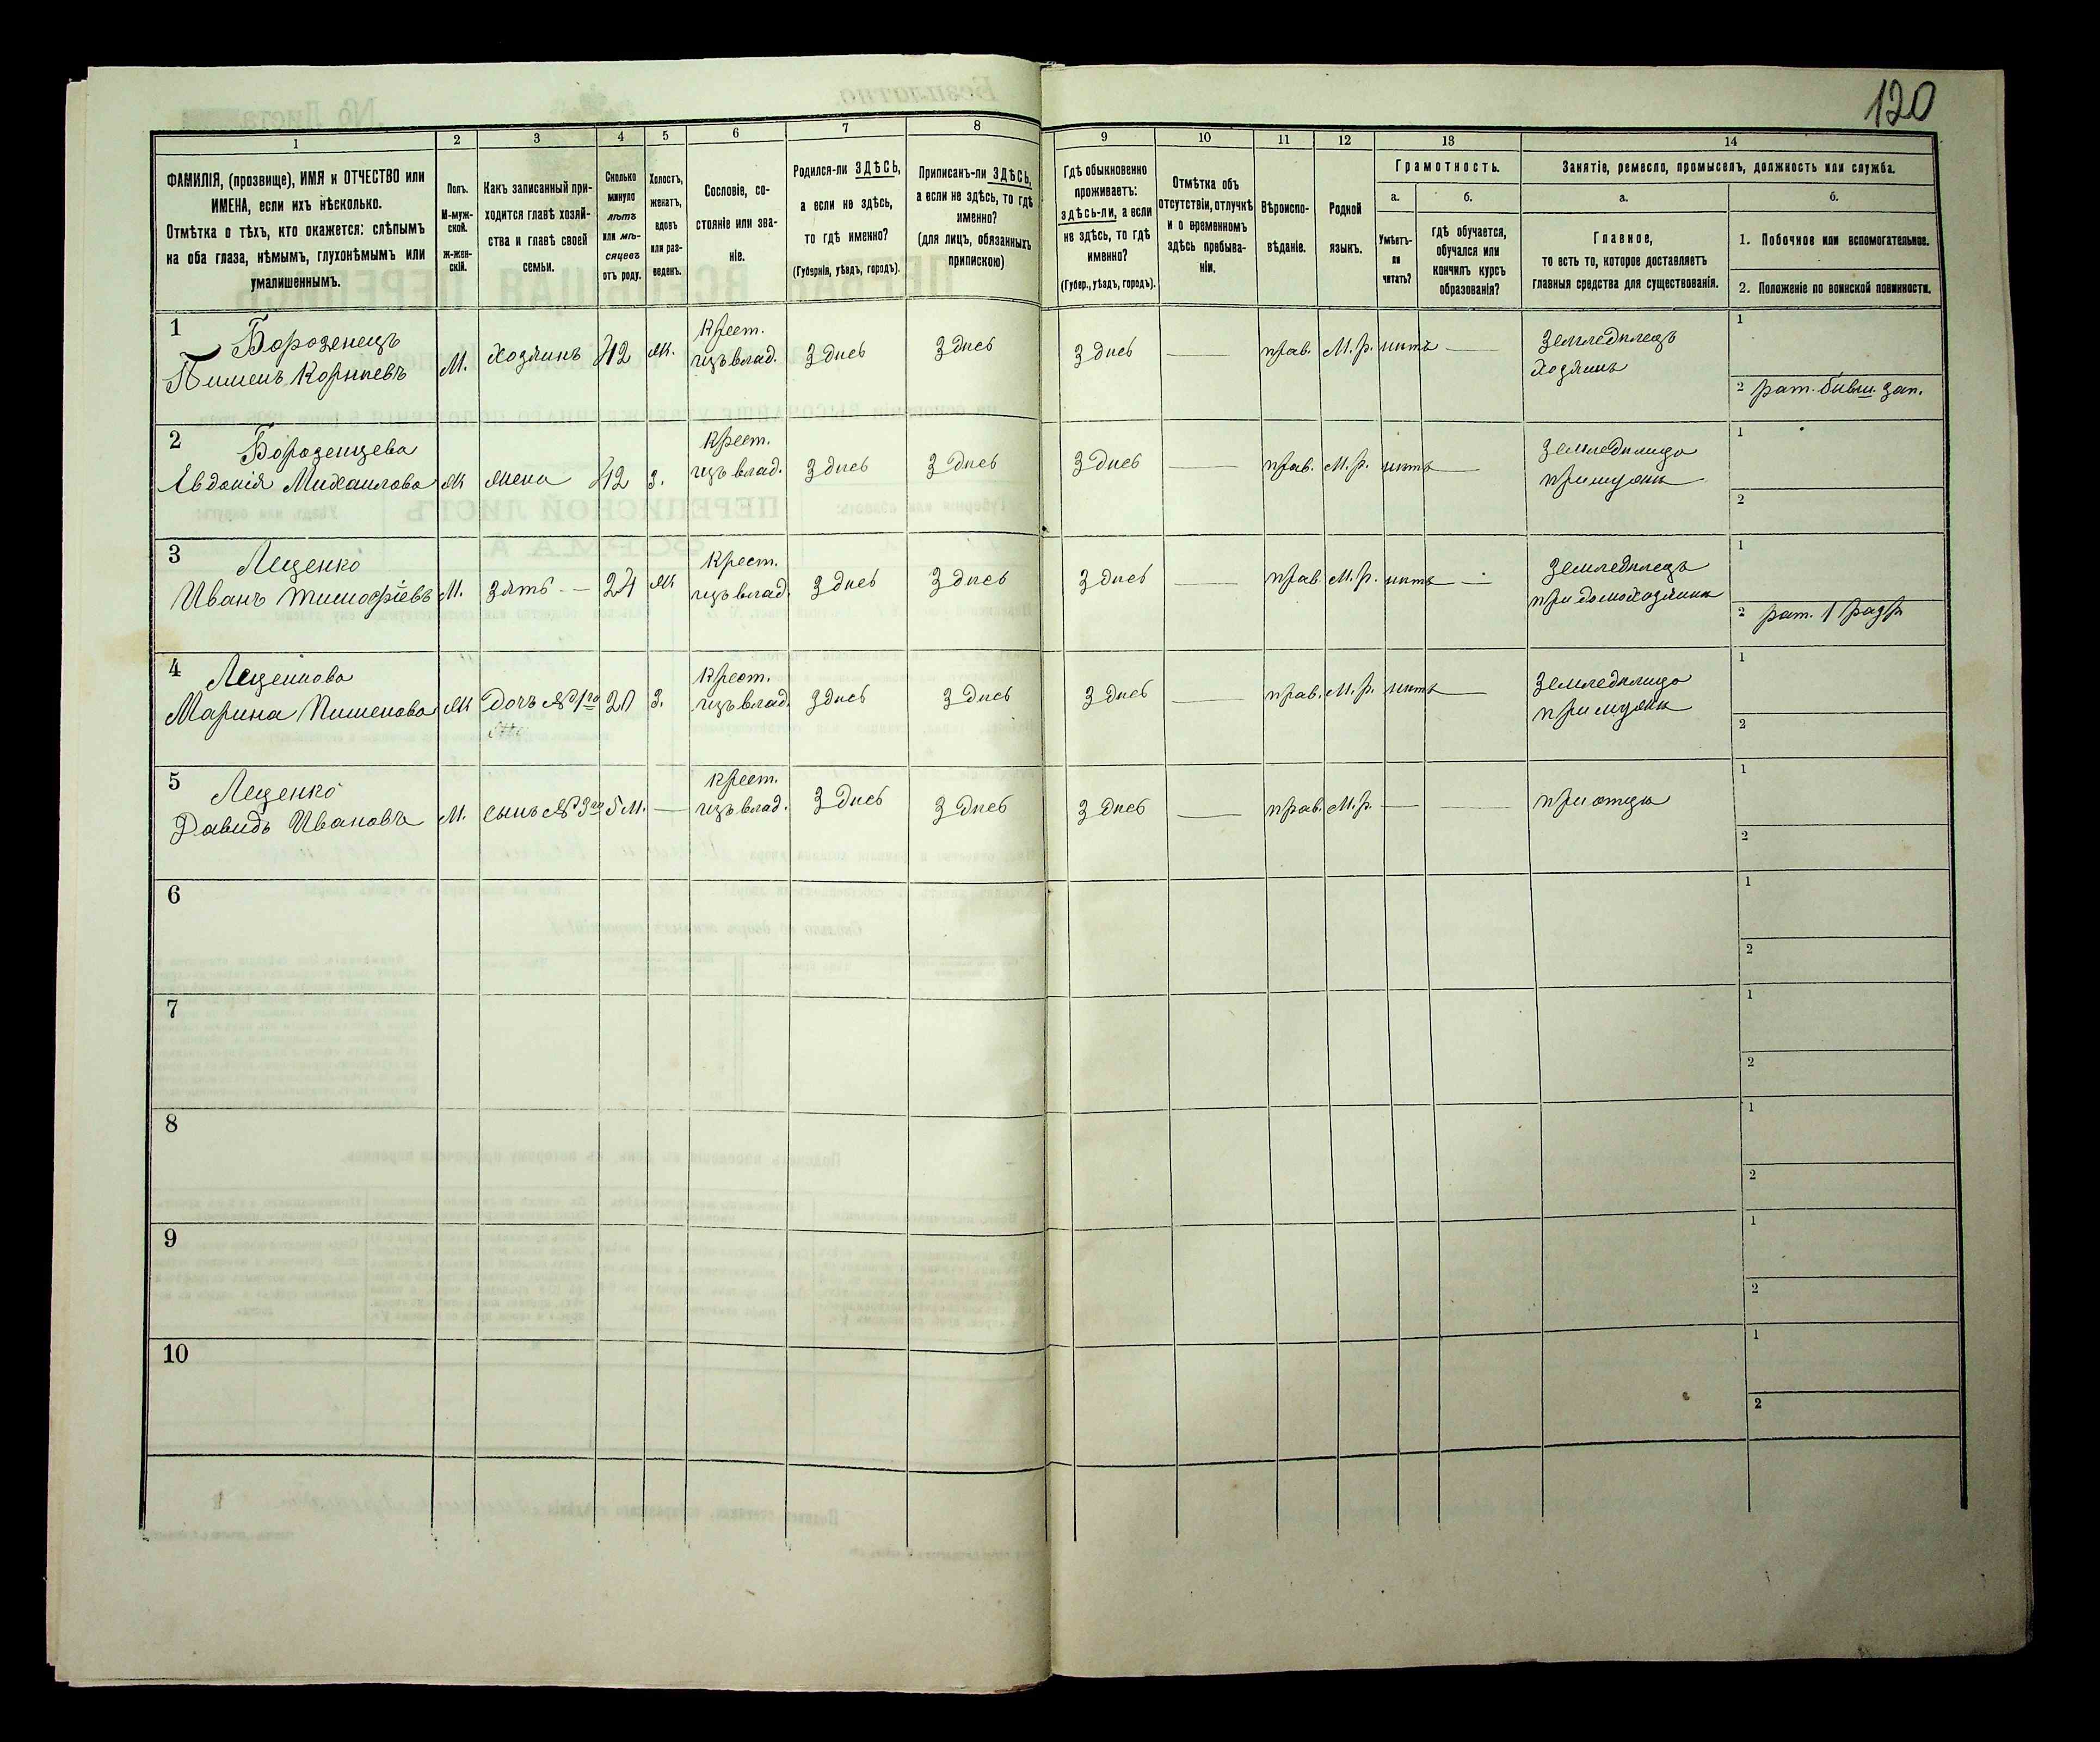 120
1
2
3
4
5
6
7
8
9
10
11
12
13
14
ФАМИЛІЯ, (прозвище), ИМЯ и ОТЧЕСТВО или
ИМЕНА, если ихъ нѣсколько.
Отмѣтка о тѣхъ, кто окажется: слѣпымъ
на оба глаза, нѣмымъ, глухонѣмымъ или
умалишеннымъ.
Полъ.
М-муж-
ской.
Ж-жен-
скій.
Какъ записанный при-
ходится главѣ хозяй-
ства и главѣ своей
семьи.
Сколько
минуло
лѣтъ
или мѣ-
сяцевъ
отъ роду.
Холостъ,
женатъ,
вдовъ
или раз-
веденъ.
Сословіе, со-
стояніе или зва-
ніе.
Родился-ли ЗДѢСЬ,
а если не здѣсь,
то гдѣ именно?
(Губернія, уѣздъ, городъ).
Приписанъ-ли ЗДѢСЬ,
а если не здѣсь, то гдѣ
именно?
(для лицъ, обязанныхъ
припискою)
Гдѣ обыкновенно
проживаетъ:
здѣсь-ли, а если
не здѣсь, то гдѣ
именно?
(Губер., уѣздъ, городъ).
Отмѣтка объ
отсутствіи, отлучкѣ
и о временномъ
здѣсь пребыва-
ніи.
Вѣроиспо-
вѣданіе.
Родной
языкъ.
Грамотность.
а.
Умѣетъ-
ли
читать?
б.
гдѣ обучается,
обучался или
кончилъ курсъ
образованія?
Занятіе, ремесло, промыселъ, должность или служба.
а.
Главное,
то есть то, которое доставляетъ
главныя средства для существованія.
б.
1. Побочное или вспомогательное.
2. Положеніе по воинской повинности.
1 Борозенецъ
Пименъ Корнѣевъ
М.
Хозяинъ
42
Ж.
Крест.
изъ влад.
Здѣсь
Здѣсь
Здѣсь
—
прав.
М. р.
нѣтъ
—
Земледѣлецъ
Хозяинъ
1
2 рат. бывш. зап.
2 Борозенцева
Евдокія Михаилова
Ж
жена
42
З.
Крест.
изъ влад.
Здѣсь
Здѣсь
Здѣсь
—
прав.
М. р.
нѣтъ
—
Земледѣлица
при мужѣ
1
2
3 Лещенко
Иванъ Тимофіевъ
М.
Зять —
24
Ж
Крест.
изъ влад.
Здѣсь
Здѣсь
Здѣсь
—
прав.
М. р.
нѣтъ
—
Земледѣлецъ
при домохозяинѣ
1
2 рат. 1 разр.
4 Лещенкова
Марина Пименова
Ж
Дочь № 1го
20
З.
Крест.
изъ влад.
Здѣсь
Здѣсь
Здѣсь
—
прав.
М. р.
нѣтъ
—
Земледѣлица
при мужѣ
1
2
5 Лещенко
Давидъ Ивановъ
М.
сынъ № 3го
5 М.
—
Крест.
изъ влад.
Здѣсь
Здѣсь
Здѣсь
—
прав.
М. р.
—
—
при отцѣ
1
2
6
1
2
7
1
2
8
1
2
9
1
2
10
1
2